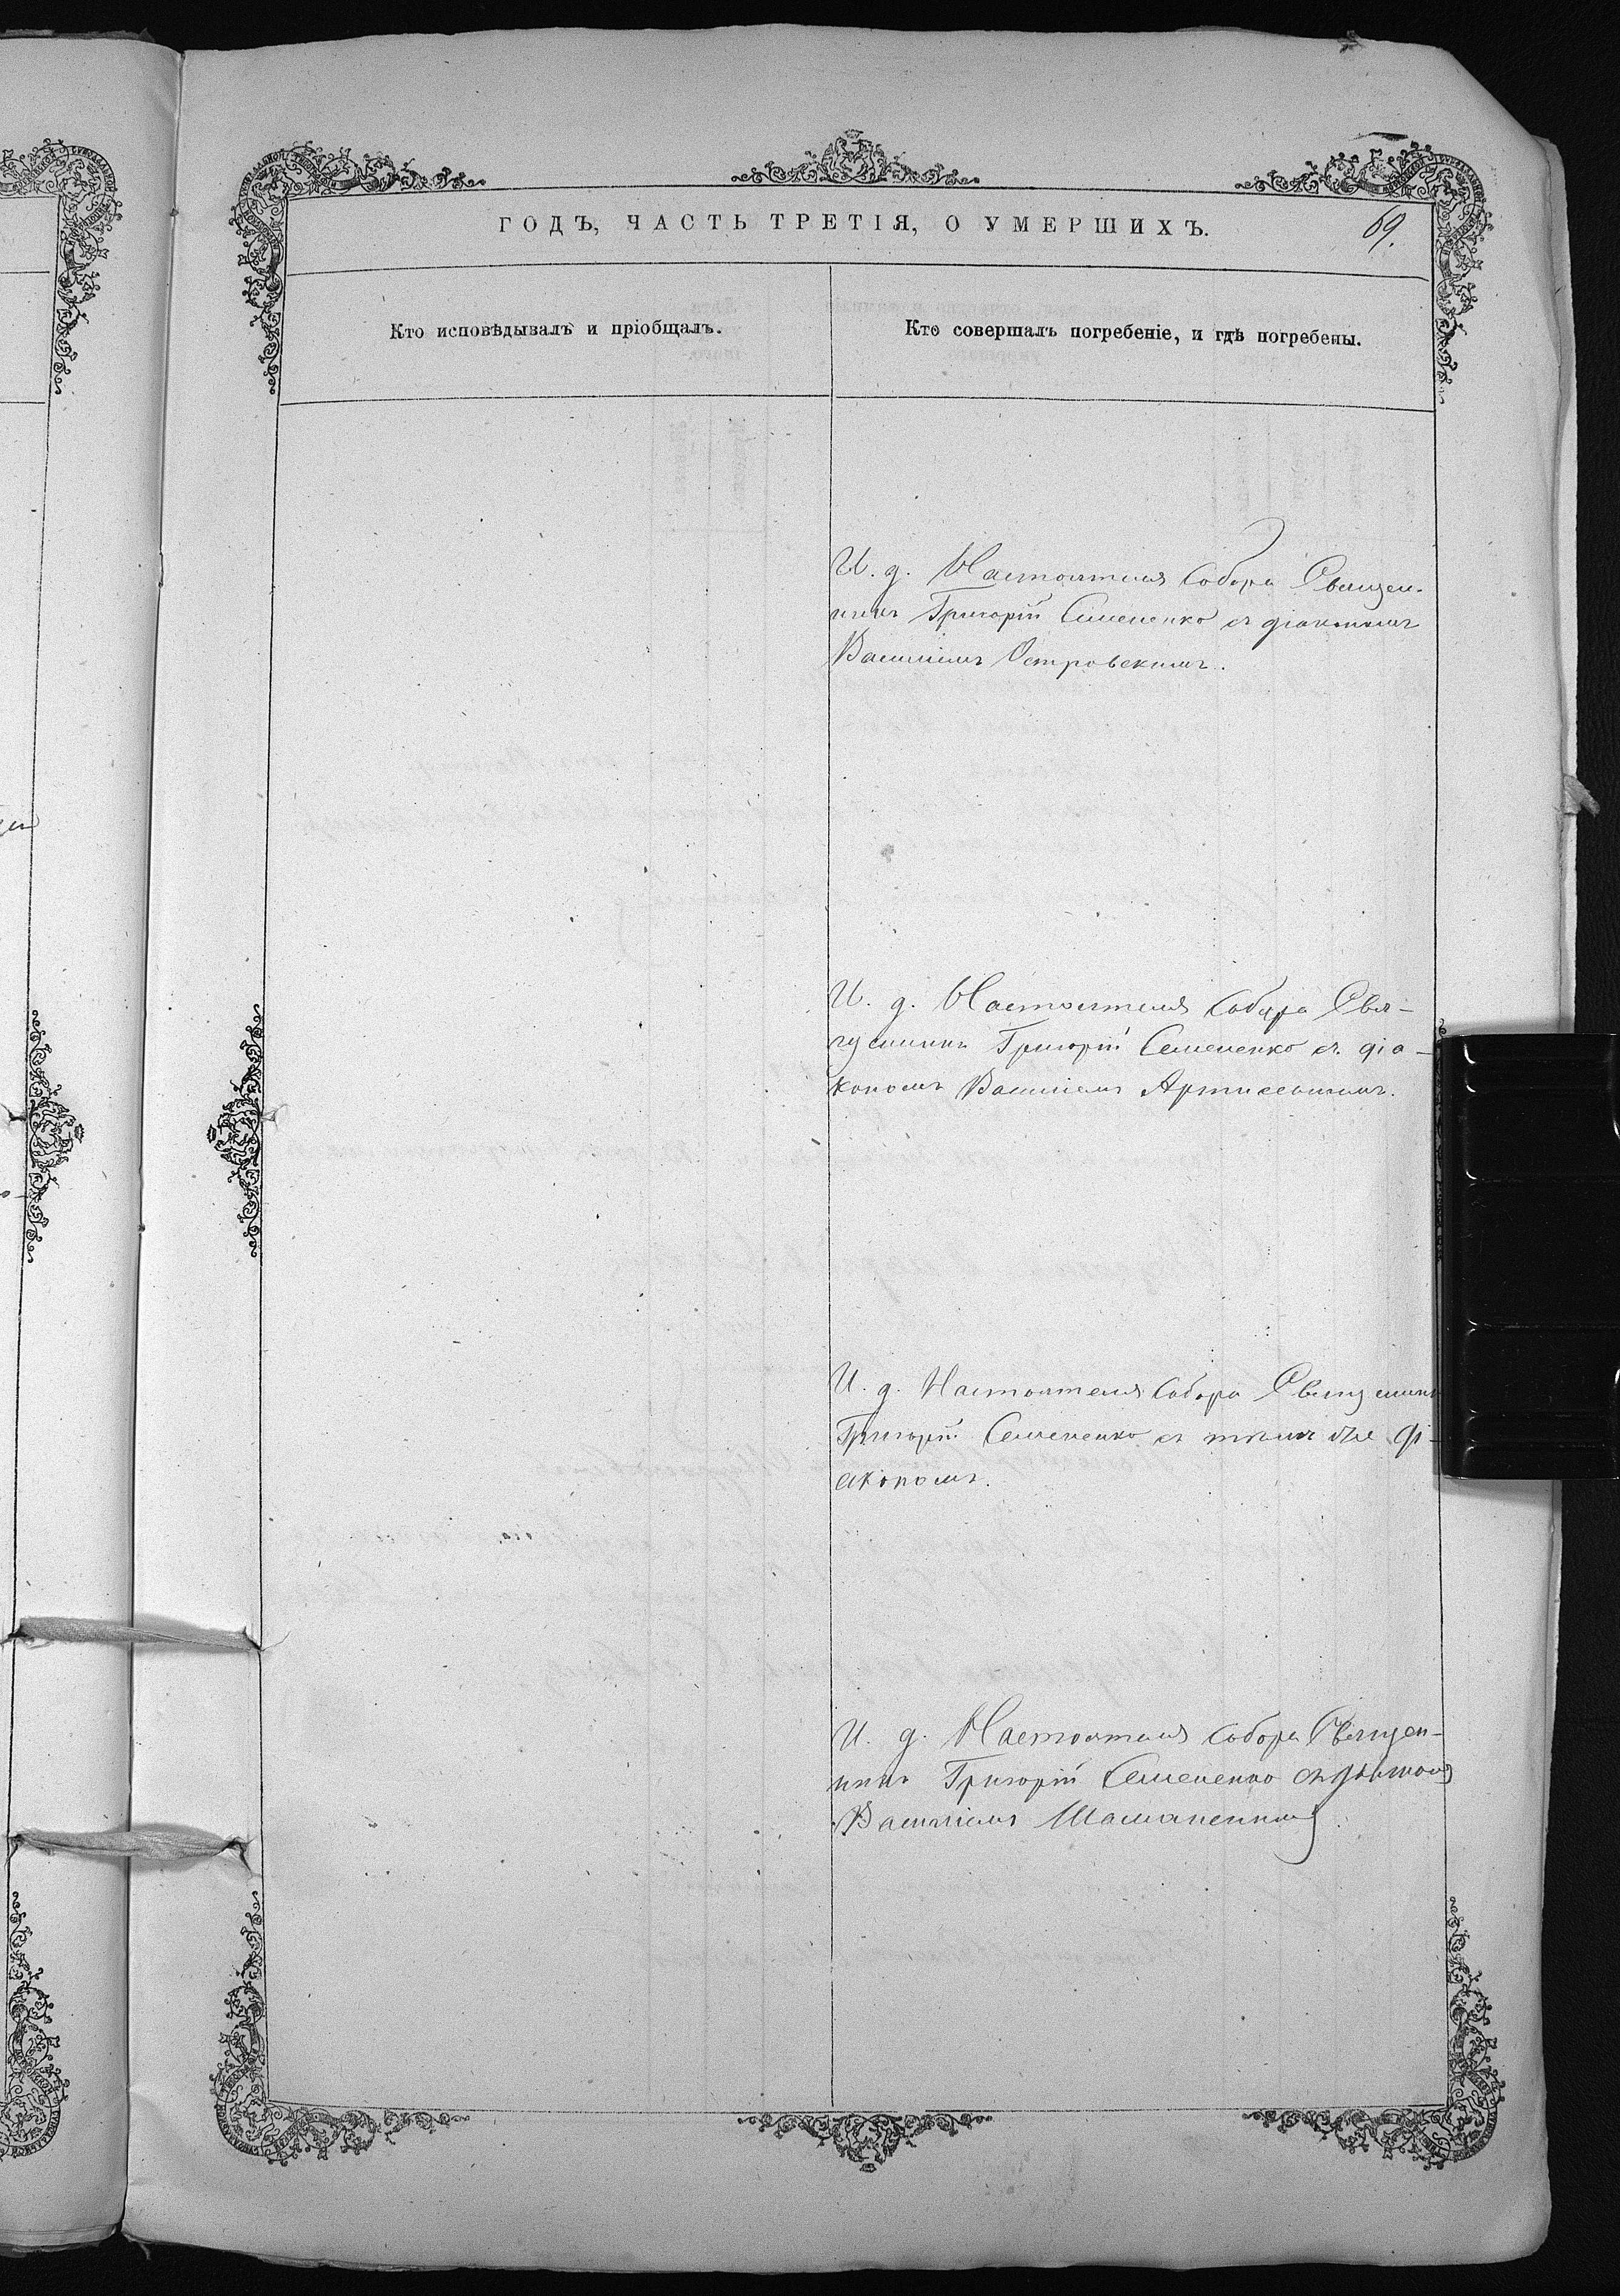 ГОДЪ, ЧАСТЬ ТРЕТІЯ, О УМЕРШИХЪ.
69.
Кто исповѣдывалъ и пріобщалъ.
Кто совершалъ погребеніе, и гдѣ погребены.
И. д. Настоятеля Собора Священ-
никъ Григорій Семененко съ діакономъ
Василіемъ Островскимъ.
И. д. Настоятеля Собора Свя-
щенникъ Григорій Семененко съ діа-
кономъ Василіемъ
И. д. Настоятеля Собора Священникъ
Григорій Семененко съ тѣмъ же ді-
акономъ.
И. д. Настоятеля Собора Священ-
никъ Григорій Семененко
Василіемъ